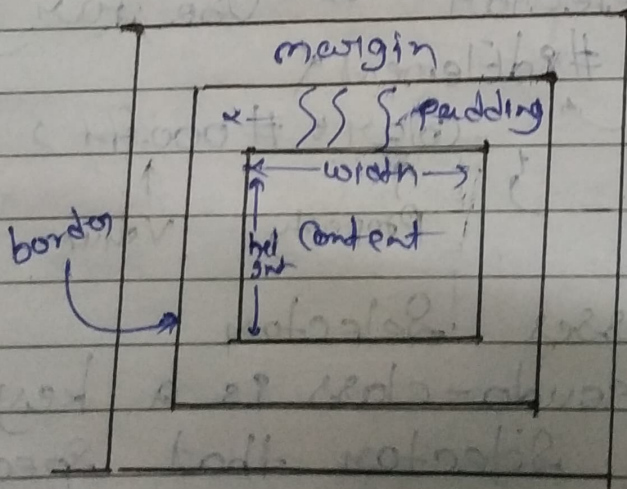 margin
padding
width
border
hei
ght
Content